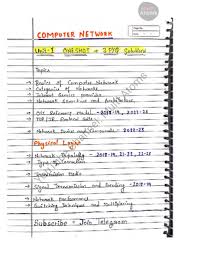 COMPUTER NETWORK
Unit-1 ONE SHOT + 3 PYQ Solutions
Topics
→ Basics of Computer Network
→ Categories of Networks
→ Internet Service providers
→ Network Structure and Architecture
→ OSI Reference Model - 2018-19, 2021-22
→ TCP/IP Protocol Suite
→ Network Devices and Components - 2022-23
Physical Layer
→ Network Topology - 2018-19, 21-22, 22-23
→ Types of Connection
→ Transmission
→ Signal Transmission and Encoding - 2018-19
→ Network Performance
→ Switching Techniques and Multiplexing
Subscribe + Join Telegram